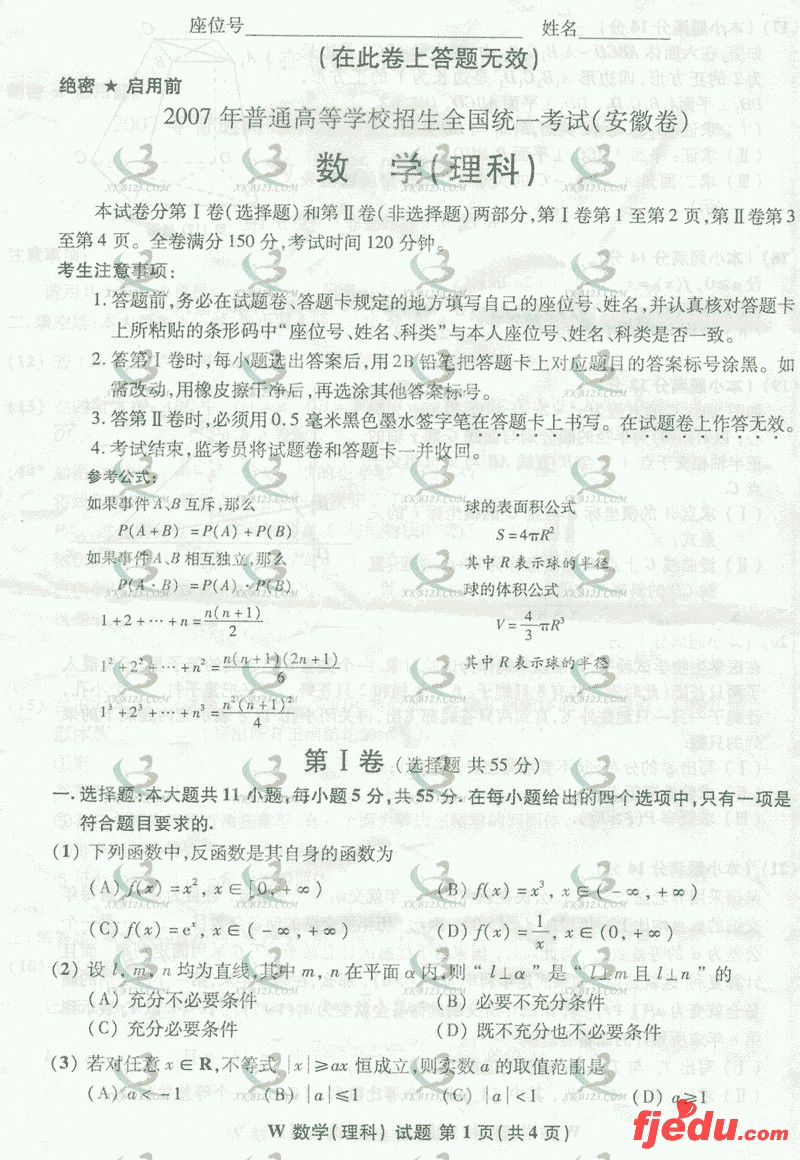 座位号 姓名
(在此卷上答题无效)
绝密 ★ 启用前
2007 年普通高等学校招生全国统一考试(安徽卷)
数 学(理科)
本试卷分第 Ⅰ 卷(选择题)和第 Ⅱ 卷(非选择题)两部分,第 Ⅰ 卷第 1 至第 2 页,第 Ⅱ 卷第 3
至第 4 页。全卷满分 150 分,考试时间 120 分钟。
考生注意事项:
1. 答题前,务必在试题卷、答题卡规定的地方填写自己的座位号、姓名,并认真核对答题卡
上所粘贴的条形码中“座位号、姓名、科类”与本人座位号、姓名、科类是否一致。
2. 答第 Ⅰ 卷时,每小题选出答案后,用 2B 铅笔把答题卡上对应题目的答案标号涂黑。如
需改动,用橡皮擦干净后,再选涂其他答案标号。
3. 答第 Ⅱ 卷时,必须用 0.5 毫米黑色墨水签字笔在答题卡上书写。在试题卷上作答无效。
4. 考试结束,监考员将试题卷和答题卡一并收回。
参考公式:
如果事件 A、B 互斥,那么 球的表面积公式
P(A+B) =P(A)+P(B) S=4πR²
如果事件 A、B 相互独立,那么 其中 R 表示球的半径
P(A·B) =P(A)·P(B) 球的体积公式
1+2+⋯+n=n(n+1)/2 V=4/3 πR³
1²+2²+⋯+n²=n(n+1)(2n+1)/6 其中 R 表示球的半径
1³+2³+⋯+n³=n²(n+1)²/4
第 Ⅰ 卷 (选择题 共 55 分)
一. 选择题:本大题共 11 小题,每小题 5 分,共 55 分. 在每小题给出的四个选项中,只有一项是
符合题目要求的.
(1) 下列函数中,反函数是其自身的函数为
(A) f(x) =x², x∈[0,+∞) (B) f(x) =x³, x∈(-∞,+∞)
(C) f(x) =eˣ, x∈(-∞,+∞) (D) f(x) =1/x, x∈(0,+∞)
(2) 设 l, m, n 均为直线,其中 m, n 在平面 α 内,则 “ l⊥α ” 是 “ l⊥m 且 l⊥n ” 的
(A) 充分不必要条件 (B) 必要不充分条件
(C) 充分必要条件 (D) 既不充分也不必要条件
(3) 若对任意 x∈R,不等式 |x|≥ax 恒成立,则实数 a 的取值范围是
(A) a<-1 (B) |a|≤1 (C) |a|<1 (D) a≥1
W 数学(理科) 试题 第 1 页(共 4 页)
fjedu.com